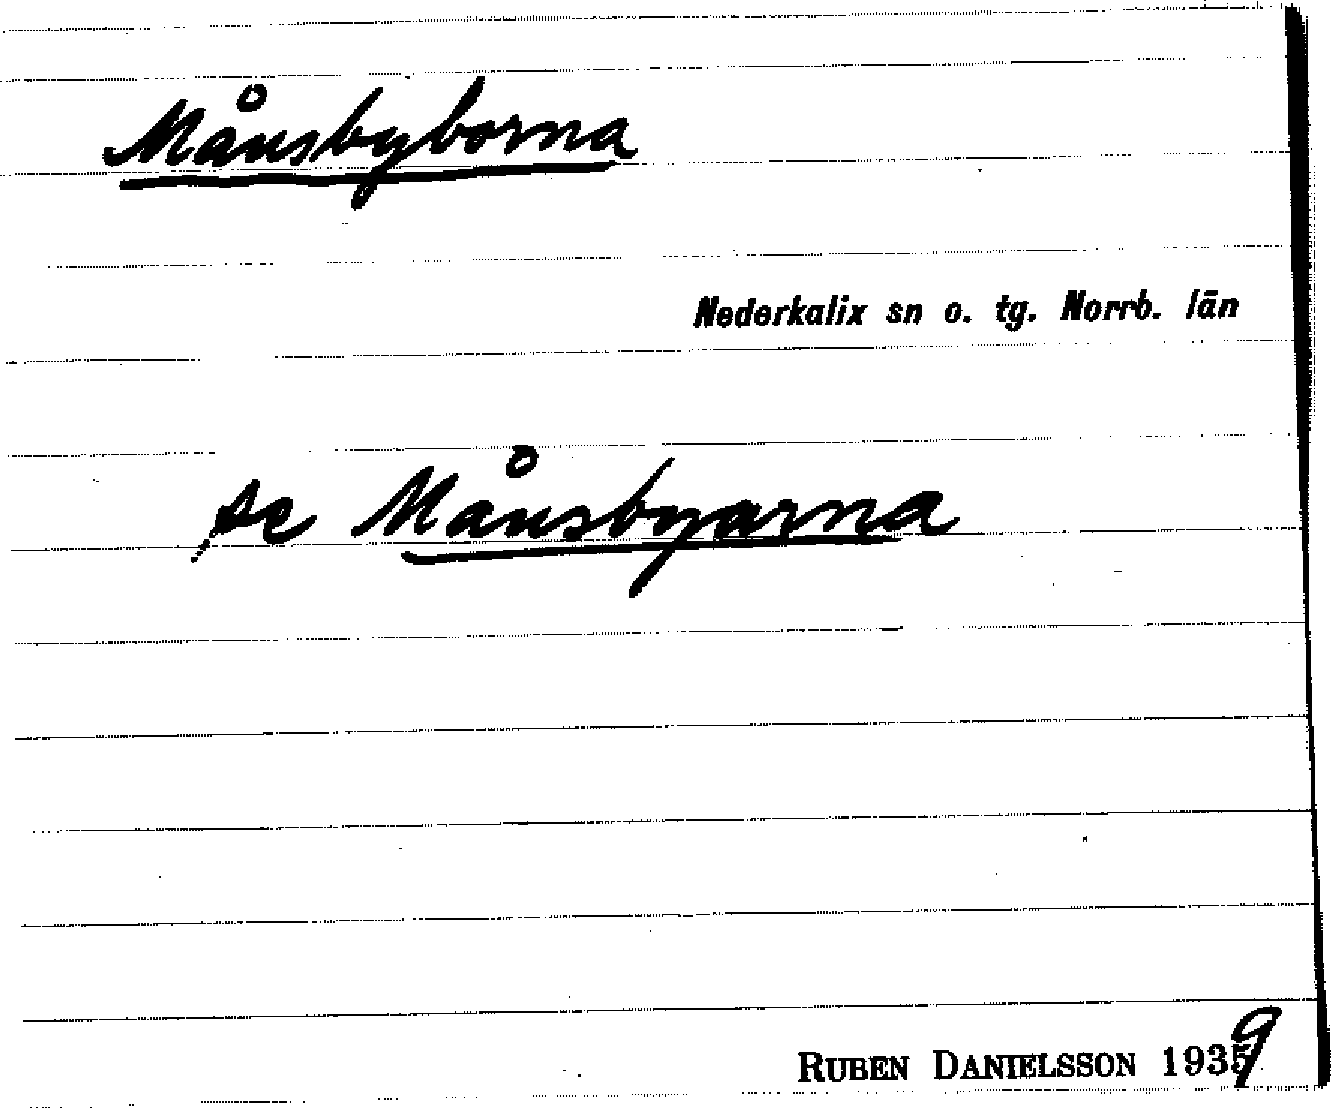 Månsbyborna
Nederkalix sn o. tg. Norrb. län
se Månsbyarna
RUBEN DANIELSSON 1939